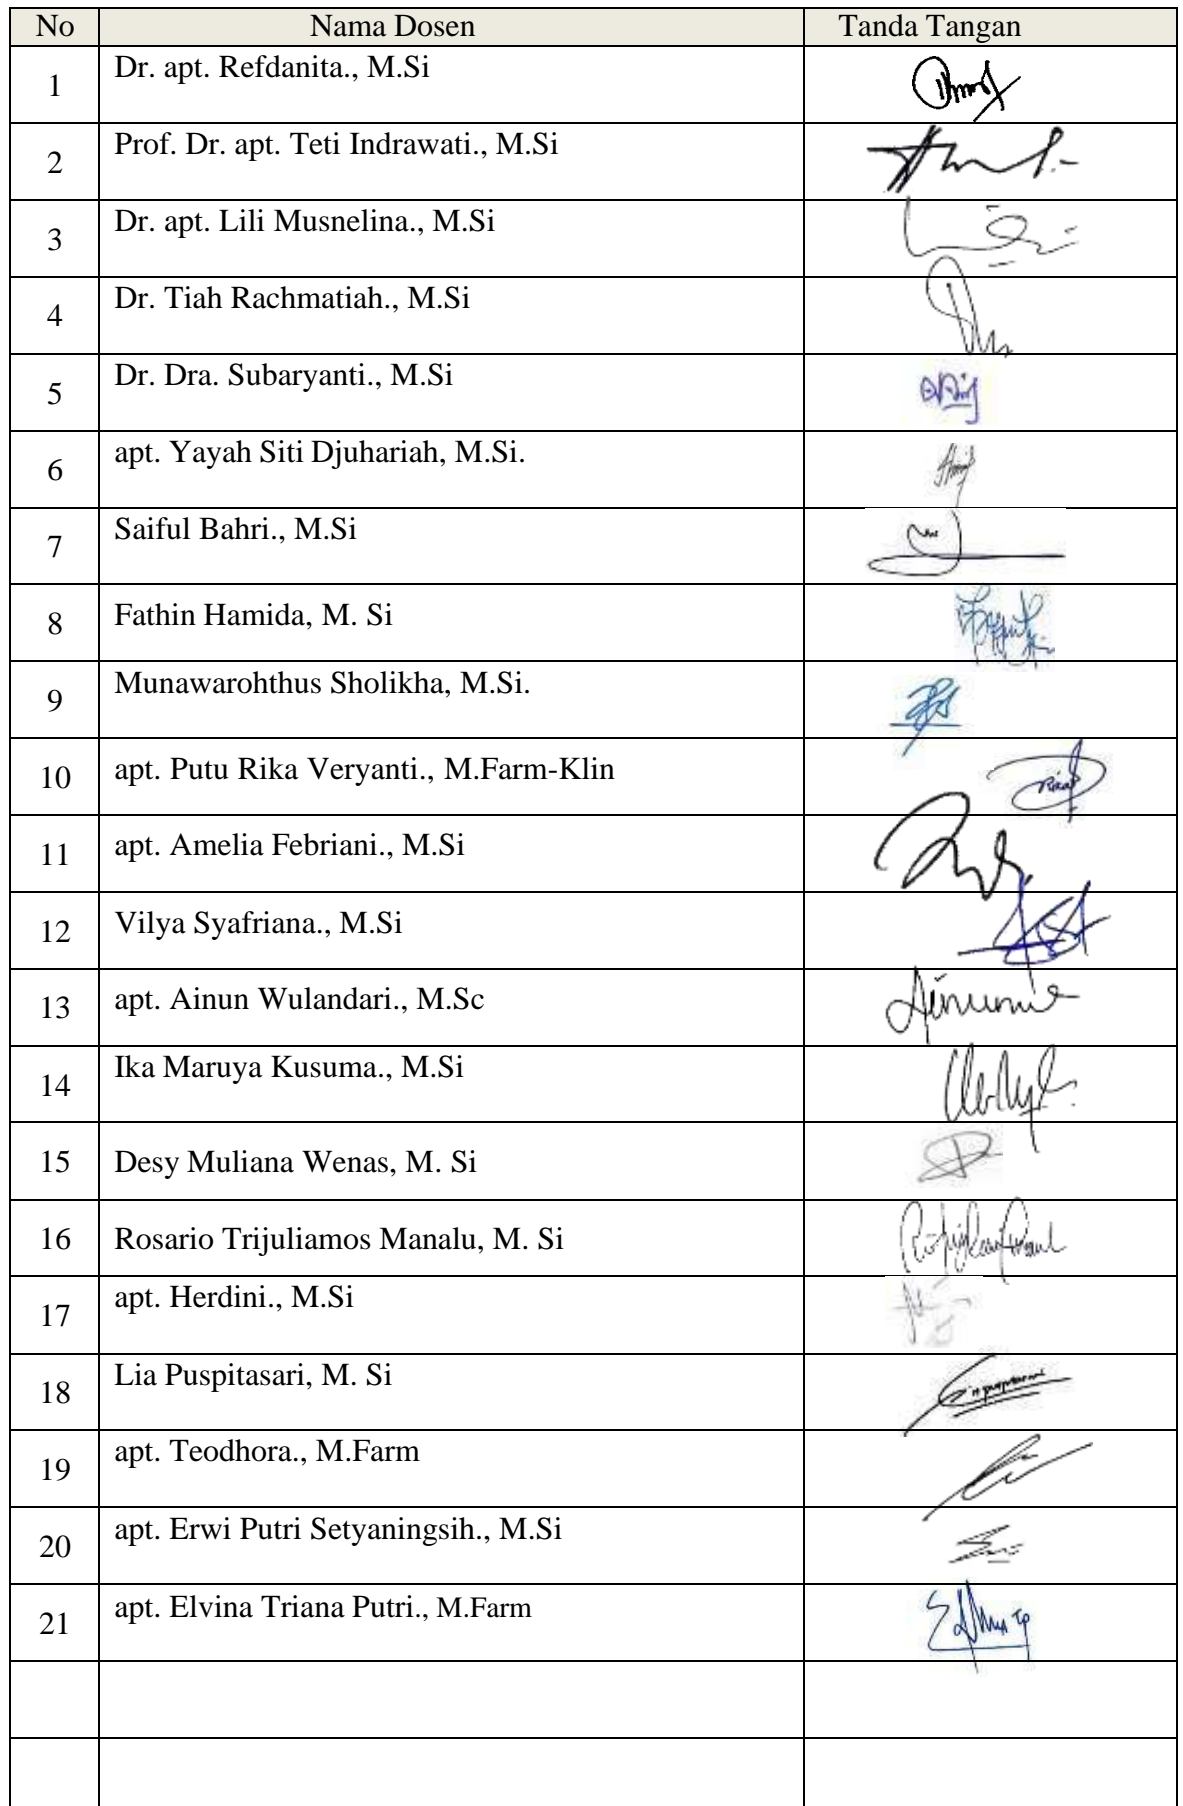 No Nama Dosen Tanda Tangan
1 Dr. apt. Refdanita., M.Si
2 Prof. Dr. apt. Teti Indrawati., M.Si
3 Dr. apt. Lili Musnelina., M.Si
4 Dr. Tiah Rachmatiah., M.Si
5 Dr. Dra. Subaryanti., M.Si
6 apt. Yayah Siti Djuhariah, M.Si.
7 Saiful Bahri., M.Si
8 Fathin Hamida, M. Si
9 Munawarohthus Sholikha, M.Si.
10 apt. Putu Rika Veryanti., M.Farm-Klin
11 apt. Amelia Febriani., M.Si
12 Vilya Syafriana., M.Si
13 apt. Ainun Wulandari., M.Sc
14 Ika Maruya Kusuma., M.Si
15 Desy Muliana Wenas, M. Si
16 Rosario Trijuliamos Manalu, M. Si
17 apt. Herdini., M.Si
18 Lia Puspitasari, M. Si
19 apt. Teodhora., M.Farm
20 apt. Erwi Putri Setyaningsih., M.Si
21 apt. Elvina Triana Putri., M.Farm